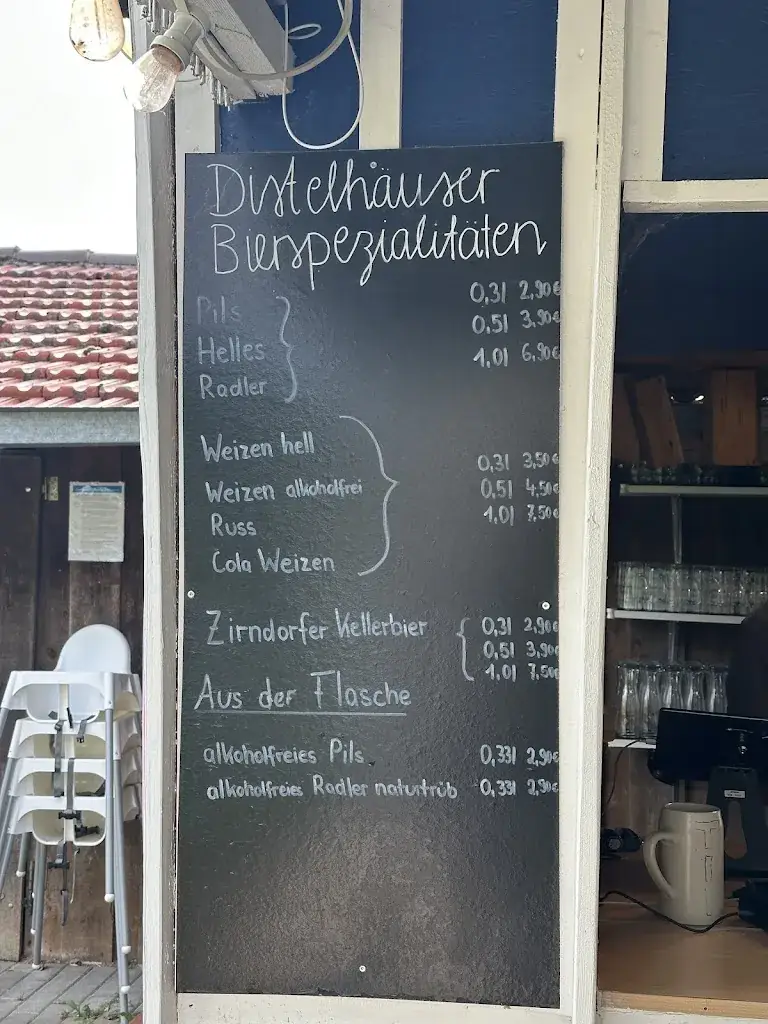 Distelhäuser
Bierspezialitäten
Pils 0,3l 2,90€
0,5l 3,90€
Helles 1,0l 6,90€
Radler
Weizen hell 0,3l 3,50€
Weizen alkoholfrei 0,5l 4,50€
Russ 1,0l 7,50€
Cola Weizen
Zirndorfer Kellerbier 0,3l 2,90€
0,5l 3,90€
1,0l 7,50€
Aus der Flasche
alkoholfreies Pils 0,33l 2,90€
alkoholfreies Radler naturtrüb 0,33l 2,90€